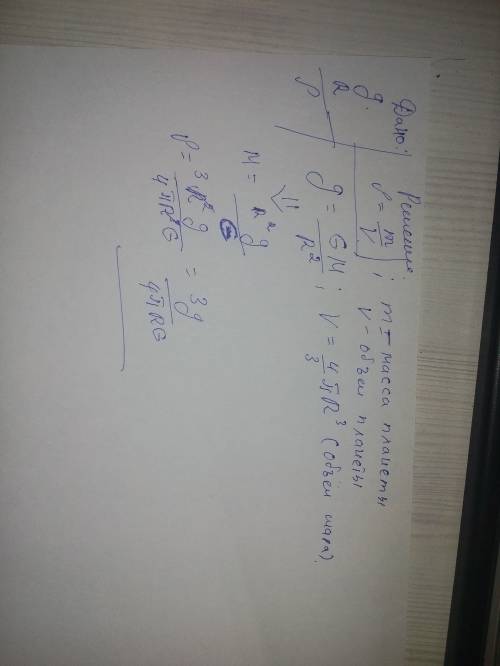 Дано: Решение:
g
R
ρ
ρ = m/V; m - масса планеты
V - объем планеты
g = GM/R²; V = 4/3 πR³ (объём шара).
⇓
M = R²g/G
ρ = 3R²g/4πR³G = 3g/4πRG